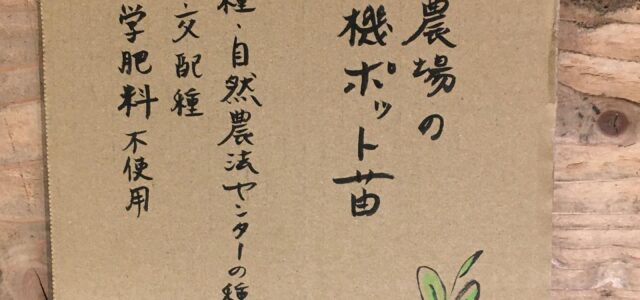 農場の
機ポット苗
種、自然農法センターの種
交配種
学肥料不使用